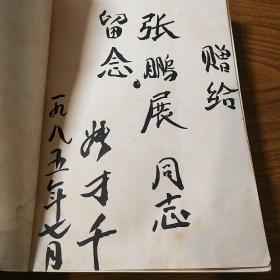 赠给
张鹏展同志
留念
才千
一九八五年七月